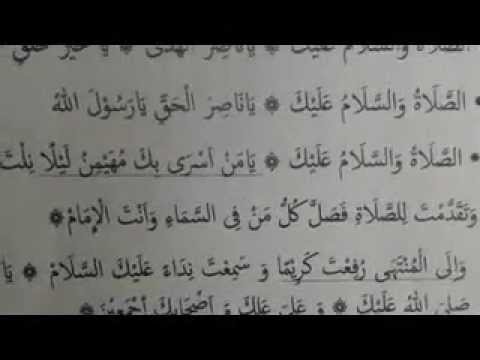 الصَّلَاةُ وَالسَّلَامُ عَلَيْكَ ۞ يَانَاصِرَ الْهُدٰى ۞ يَا خَيْرَ خَلْقِ
• الصَّلَاةُ وَالسَّلَامُ عَلَيْكَ ۞ يَانَاصِرَ الْحَقِّ يَارَسُوْلَ اللهُ
• الصَّلَاةُ وَالسَّلَامُ عَلَيْكَ ۞ يَامَنْ اَسْرَى بِكَ مُهَيْمِنُ لَيْلًا نِلْتَ
وَتَقَدَّمْتَ لِلصَّلَاةِ فَصَلَّ كُلُّ مَنْ فِى السَّمَاءِ وَاَنْتَ الْاِمَامُ ۞
وَالَى الْمُنْتَهَى رُفِعْتَ كَرِيْمًا وَ سَمِعْتَ نِدَاءً عَلَيْكَ السَّلَامْ ۞ يَا
صَلَّى اللهُ عَلَيْكَ ۞ وَ عَلَى اٰلِكَ وَ اَصْحَابِكَ اَجْمَعِيْنَ ۞